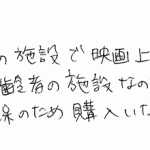 の施設で映画上
齢者の施設なの
保のため購入いた